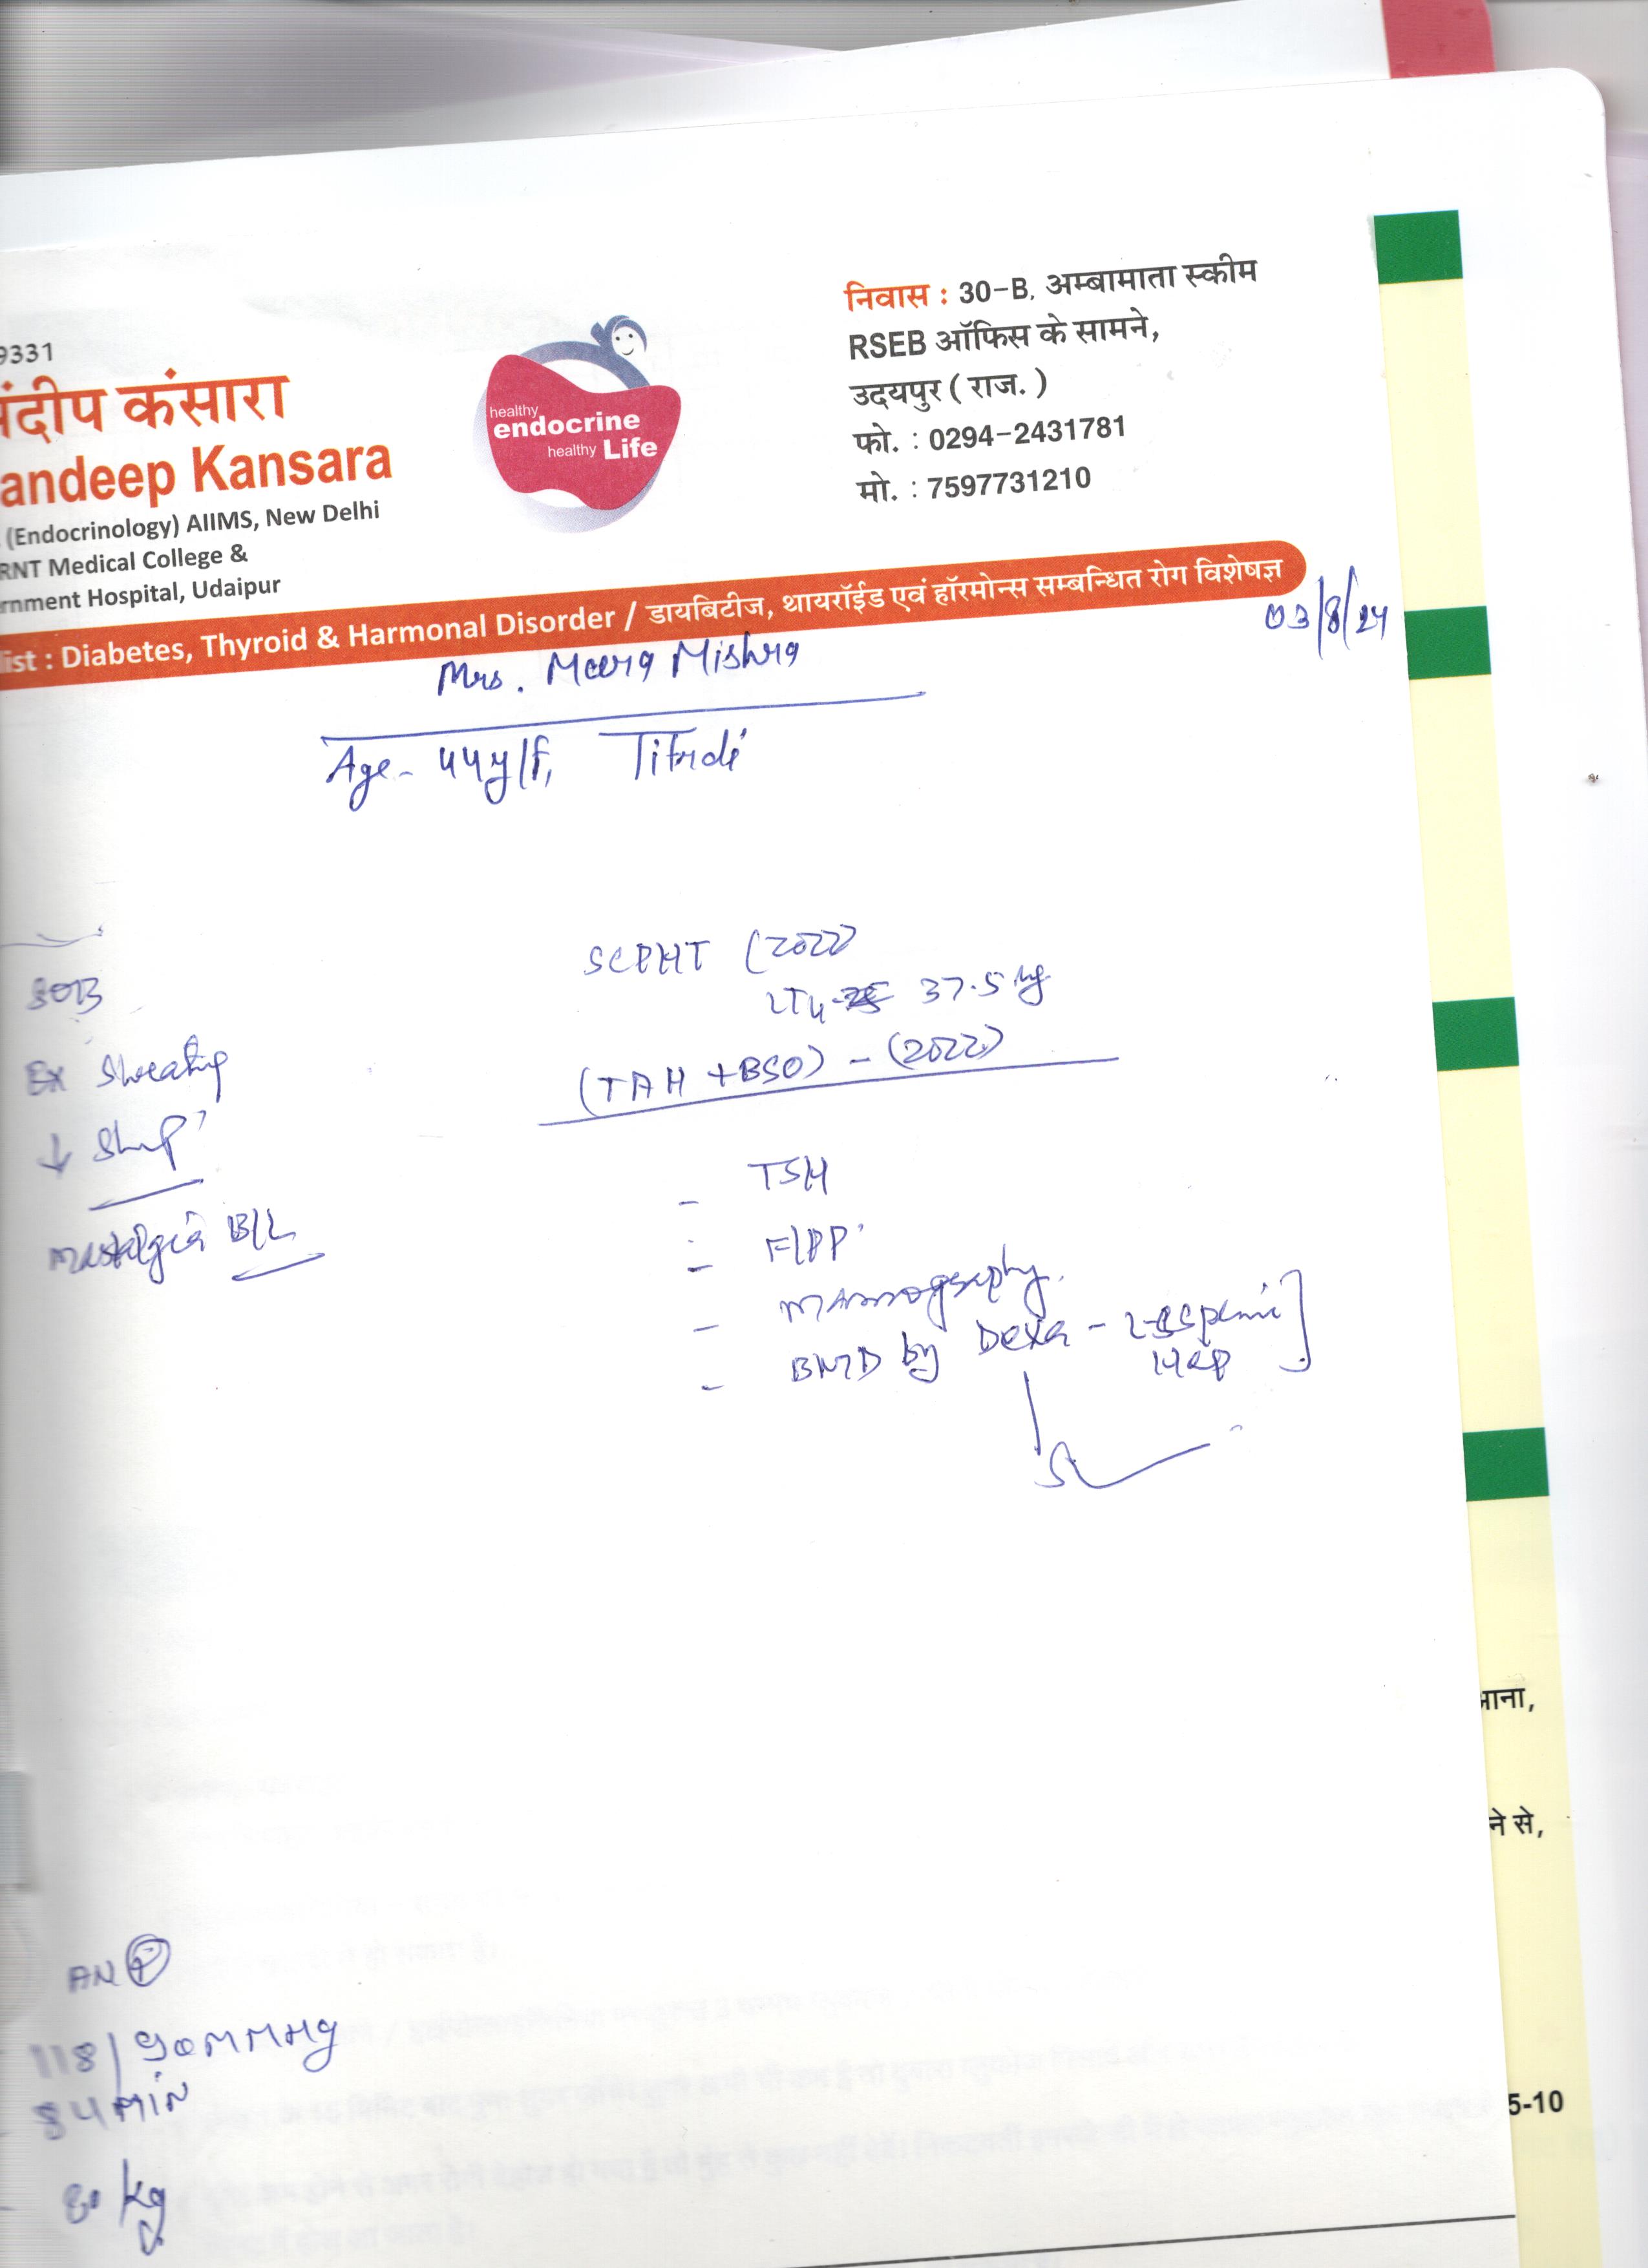 9331
संदीप कंसारा
andeep Kansara
(Endocrinology) AIIMS, New Delhi
RNT Medical College &
rnment Hospital, Udaipur
healthy
endocrine
healthy Life
निवास : 30-B, अम्बामाता स्कीम
RSEB ऑफिस के सामने,
उदयपुर ( राज. )
फो. : 0294-2431781
मो. : 7597731210
ist : Diabetes, Thyroid & Harmonal Disorder / डायबिटीज, थायरॉईड एवं हॉरमोन्स सम्बन्धित रोग विशेषज्ञ
03/8/24
Mrs. Meera Mishra
Age - 44y/f, Titrdi
SOB
Ex Sweating
↓ Sleep
Mastalgia B/L
SCPHT (2022)
LT4 - 37.5 mg
(TAH + BSO) - (2022)
- TSH
- F/PP
- Mammography
- BMD by Dexa - L-S Spine
Hip
AN
118/90MMHG
84MIN
80 kg
आना,
ने से,
5-10